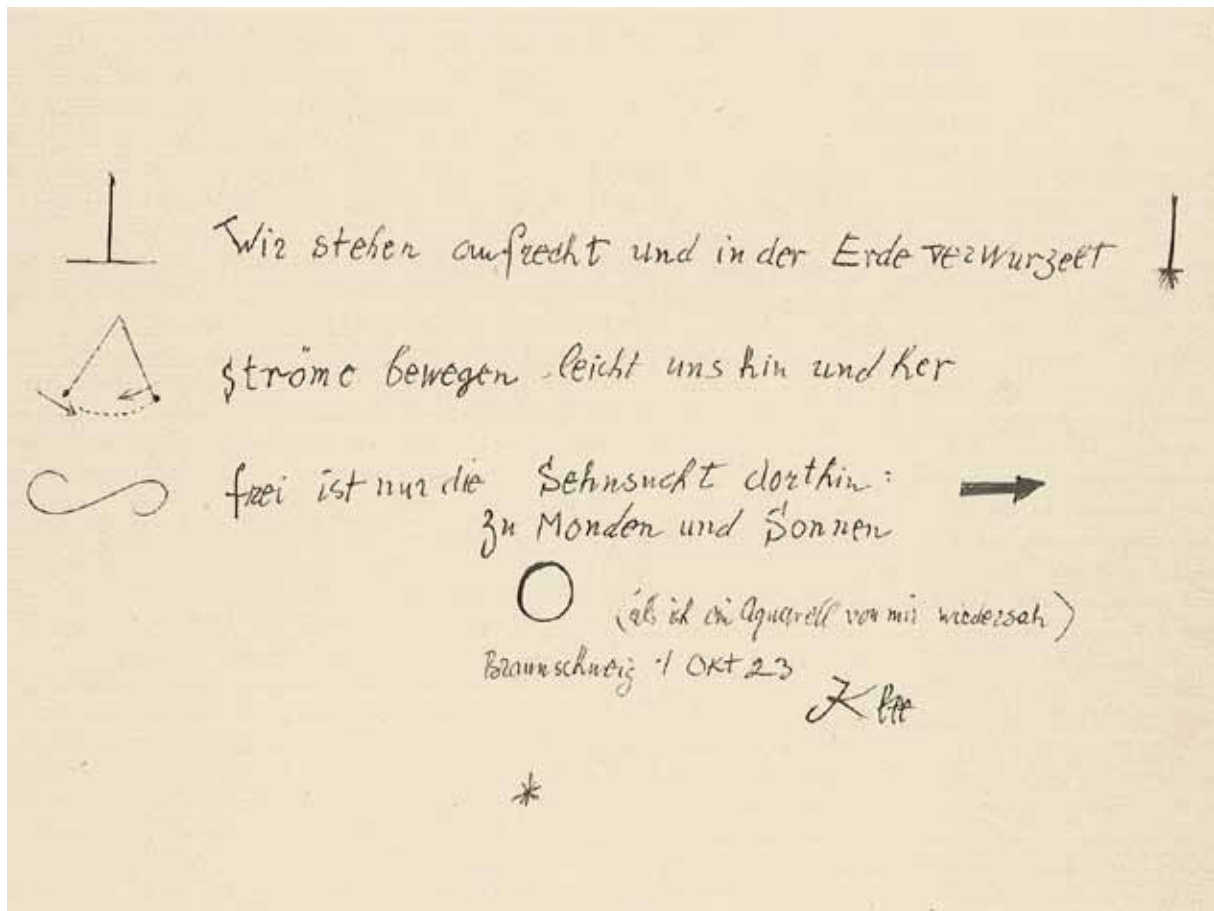 Wir stehen aufrecht und in der Erde verwurzelt
Ströme bewegen leicht uns hin und her
frei ist nur die Sehnsucht dorthin:
zu Monden und Sonnen
(als ich ein Aquarell von mir wiedersah)
Braunschweig 1 OKT 23
Klee